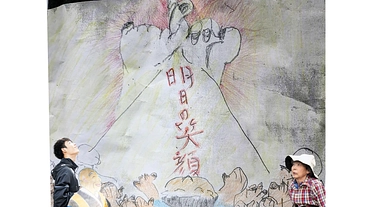 明日の笑顔